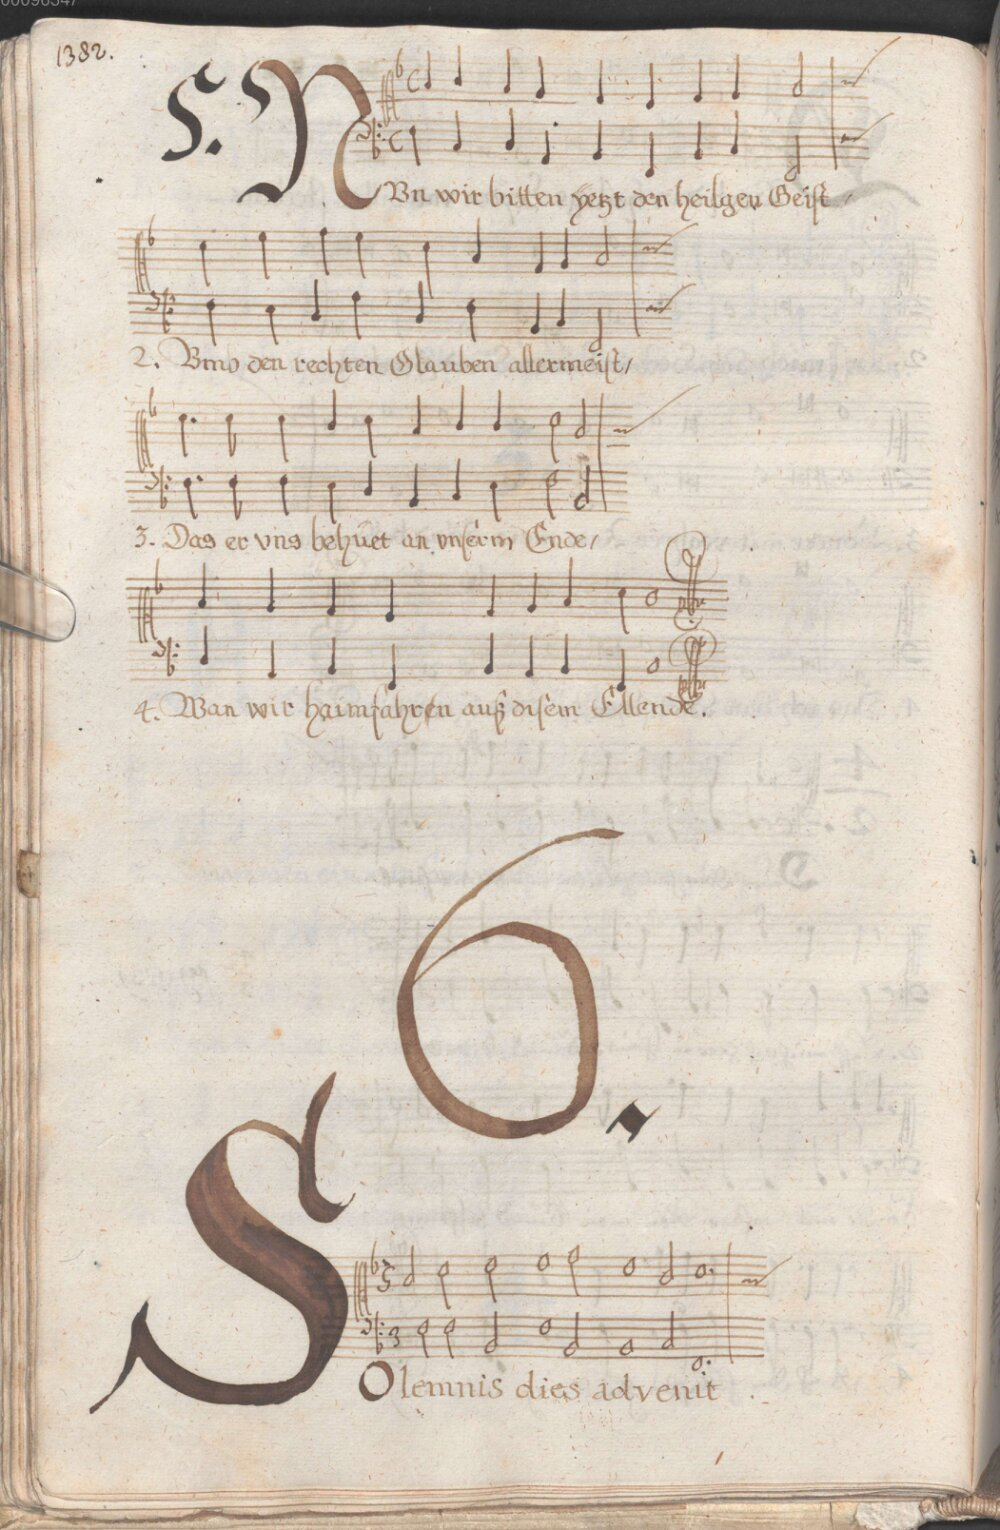 00096347
1382.
5. NVn wir bitten yetzt den heilgen Geist /
2. Vmb den rechten Glauben allermeist /
3. Das er vns behüet an vnserm Ende /
4. Wan wir haimfahren auß disem Ellende.
6.
SOlemnis dies advenit